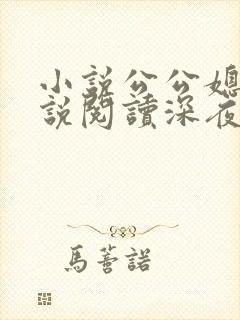 小說公公媳
說閱讀深夜
馬蒼諾